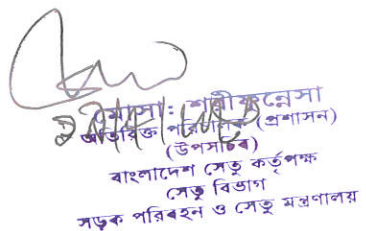 মোসা: শরীফুন্নেসা
অতিরিক্ত পরিচালক (প্রশাসন)
(উপসচিব)
বাংলাদেশ সেতু কর্তৃপক্ষ
সেতু বিভাগ
সড়ক পরিবহন ও সেতু মন্ত্রণালয়